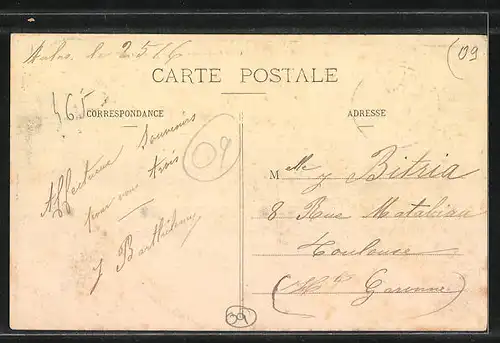 le 25/6
09
CARTE POSTALE
465
CORRESPONDANCE
ADRESSE
Affectueux Souvenirs
pour vous trois
J Barthélemy
09
Melle J Bitria
8 Rue Matabiau
Toulouse
(Hte Garonne)